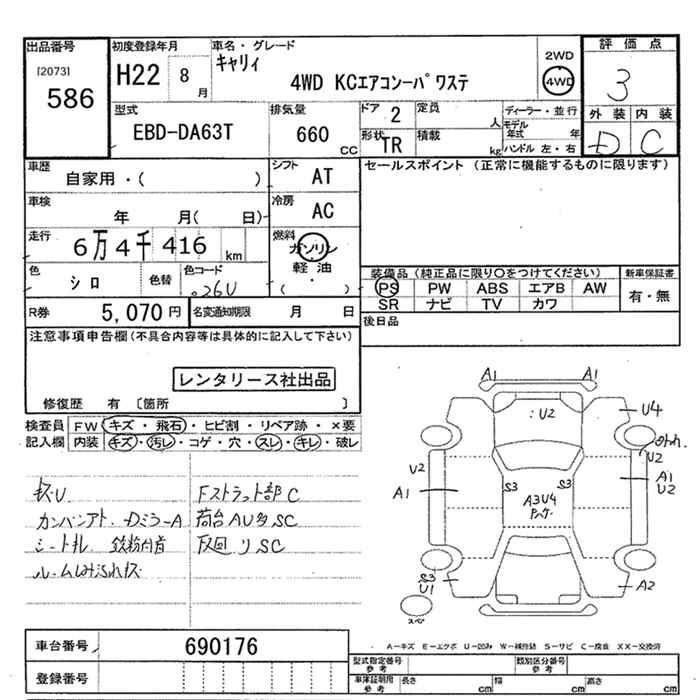 出品番号 初度登録年月 車名・グレード 2WD 評価点
[2073] キャリィ
586 H22 8月 4WD KCエアコンーパワステ 4WD 3
型式 排気量 ドア 2 定員 人 ディーラー・並行 外装 内装
EBD-DA63T 660 CC 形状 TR 積載 kg モデル年式 年 D C
ハンドル 左・右
車歴 シフト セールスポイント (正常に機能するものに限ります)
自家用・( ) AT
車検 冷房
年 月( 日) AC
走行 燃料
6万4千416 km ガソリン
軽油
( )
色 シロ 色替 色コード 026U
装備品(純正品に限り〇をつけてください) 新車保証書
PS PW ABS エアB AW 有・無
SR ナビ TV カワ
R券 5,070円 名変通知期限 月 日
後日品
注意事項申告欄(不具合内容等は具体的に記入して下さい)
レンタリース社出品
修復歴 有 〔箇所 〕
検査員 FW キズ・飛石・ヒビ割・リペア跡・×要
記入欄 内装 キズ・汚レ・コゲ・穴・スレ・キレ・破レ
Fストラット部C
カンバンアト、Dミラ-A 荷台AU多SC
A1 A1
U2 U4
U2 U2
A1 S3 S3 A1
U2
A3U4
S3
U1 A2
スペア
車台番号 690176
登録番号
A-キズ E-エクボ U-凹み W-補修跡 S-サビ C-腐食 XX-交換済
型式指定番号 参考 類別区分番号 参考
車庫証明用 参考 長さ cm 幅 cm 高さ cm